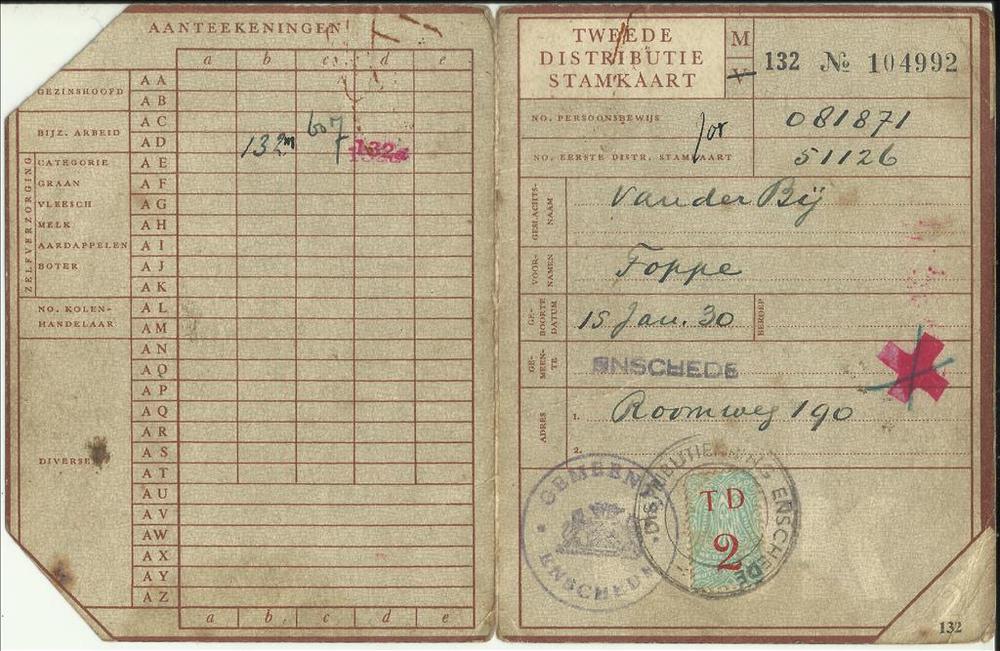 AANTEEKENINGEN
a b c d e
GEZINSHOOFD
AA
AB
BIJZ. ARBEID
AC 607
AD 132m 132
ZELFVERZORGING
CATEGORIE AE
GRAAN AF
VLEESCH AG
MELK AH
AARDAPPELEN AI
BOTER AJ
AK
NO. KOLEN- AL
HANDELAAR AM
AN
AO
AP
AQ
AR
AS
DIVERSEN
AT
AU
AV
AW
AX
AY
AZ
a b c d e
TWEEDE
DISTRIBUTIE
STAMKAART
M
V
132 № 104992
NO. PERSOONSBEWIJS 081871
NO. EERSTE DISTR. STAMKAART 51126
GESLACHTS-
NAAM
van der Bij
VOOR-
NAMEN
Foppe
GE-
BOORTE
DATUM
15 Jan. 30
BEROEP
GE-
MEEN-
TE
ENSCHEDE
ADRES
1. Roomweg 190
2.
GEMEENTE
ENSCHEDE
DISTRIBUTIEKRING ENSCHEDE
TD
2
132